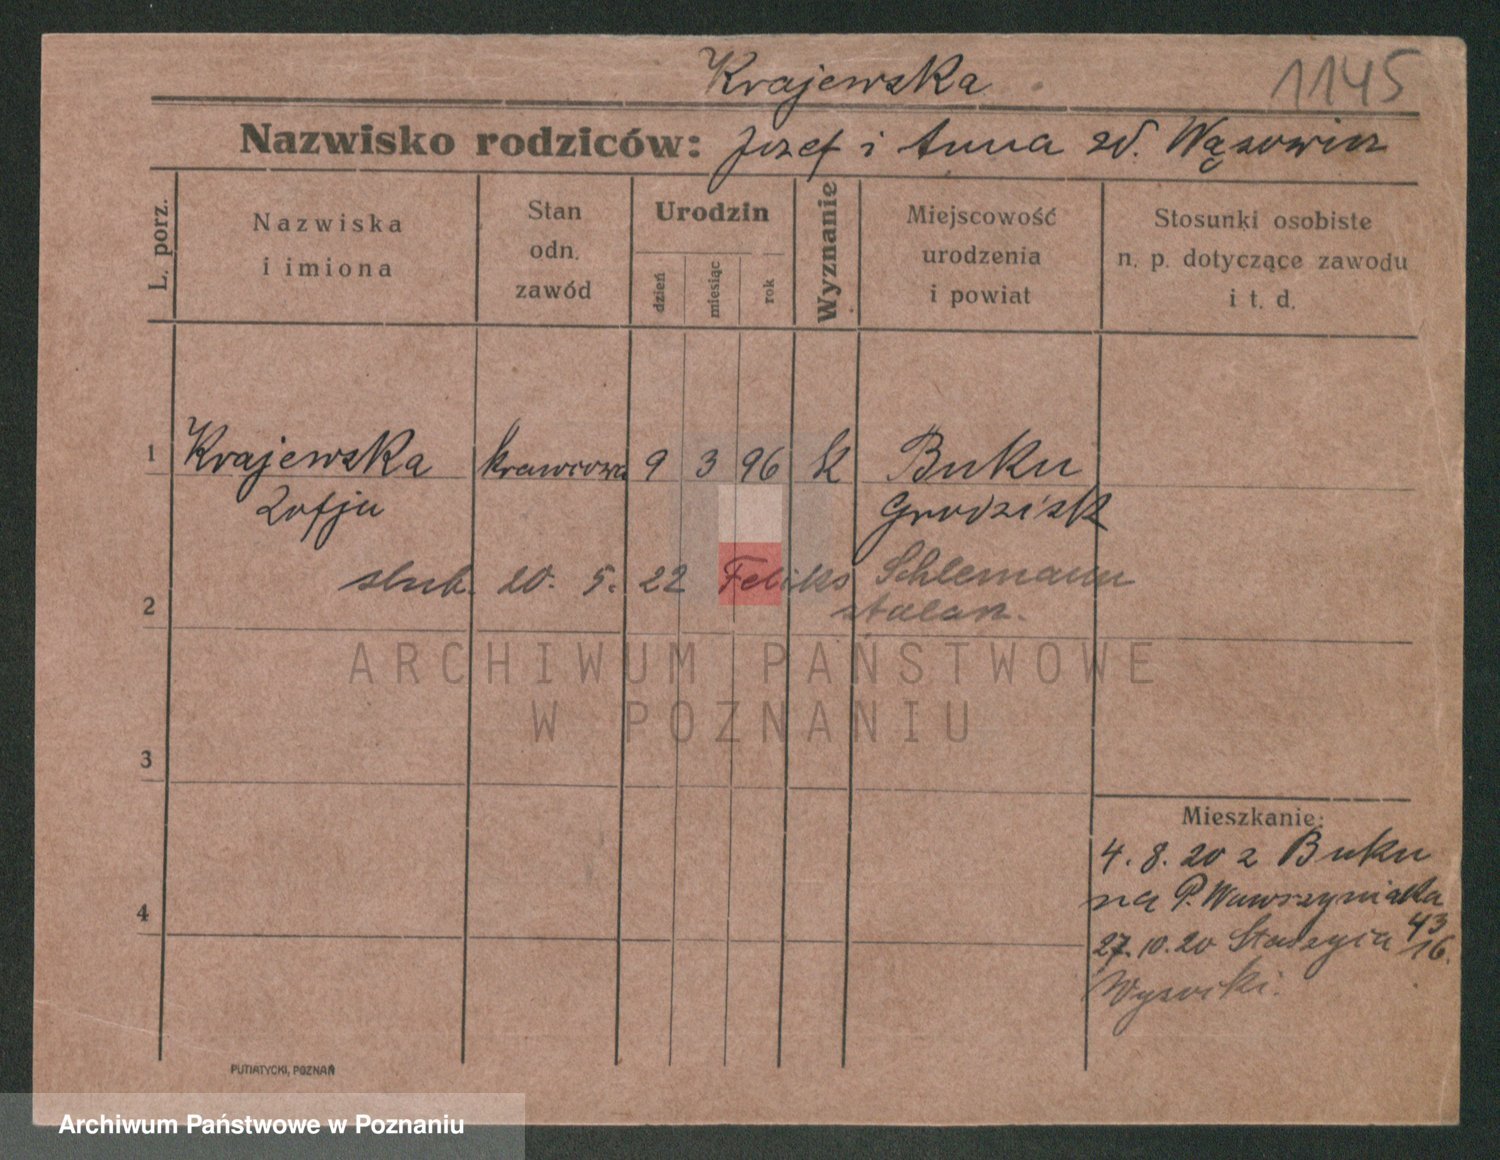 Krajewska
1145
Nazwisko rodziców: Jozef i Anna zd. Wąsowicz
L. porz.
Nazwiska i imiona
Stan odn. zawód
Urodzin
dzień
miesiąc
rok
Wyznanie
Miejscowość urodzenia i powiat
Stosunki osobiste n. p. dotyczące zawodu i t. d.
1
Krajewska krawcowa 9 3 96 k Buku
Zofja Grodzisk
ślub. 20. 5. 22 Feliks Schlemann
2
stolarz.
ARCHIWUM PAŃSTWOWE
W POZNANIU
3
4
Mieszkanie:
4. 8. 20 z Buku
na P. Wawrzyniaka
43
27. 10. 20 Staszyca 16.
Wysocki.
PUTIATYCKI, POZNAŃ
Archiwum Państwowe w Poznaniu